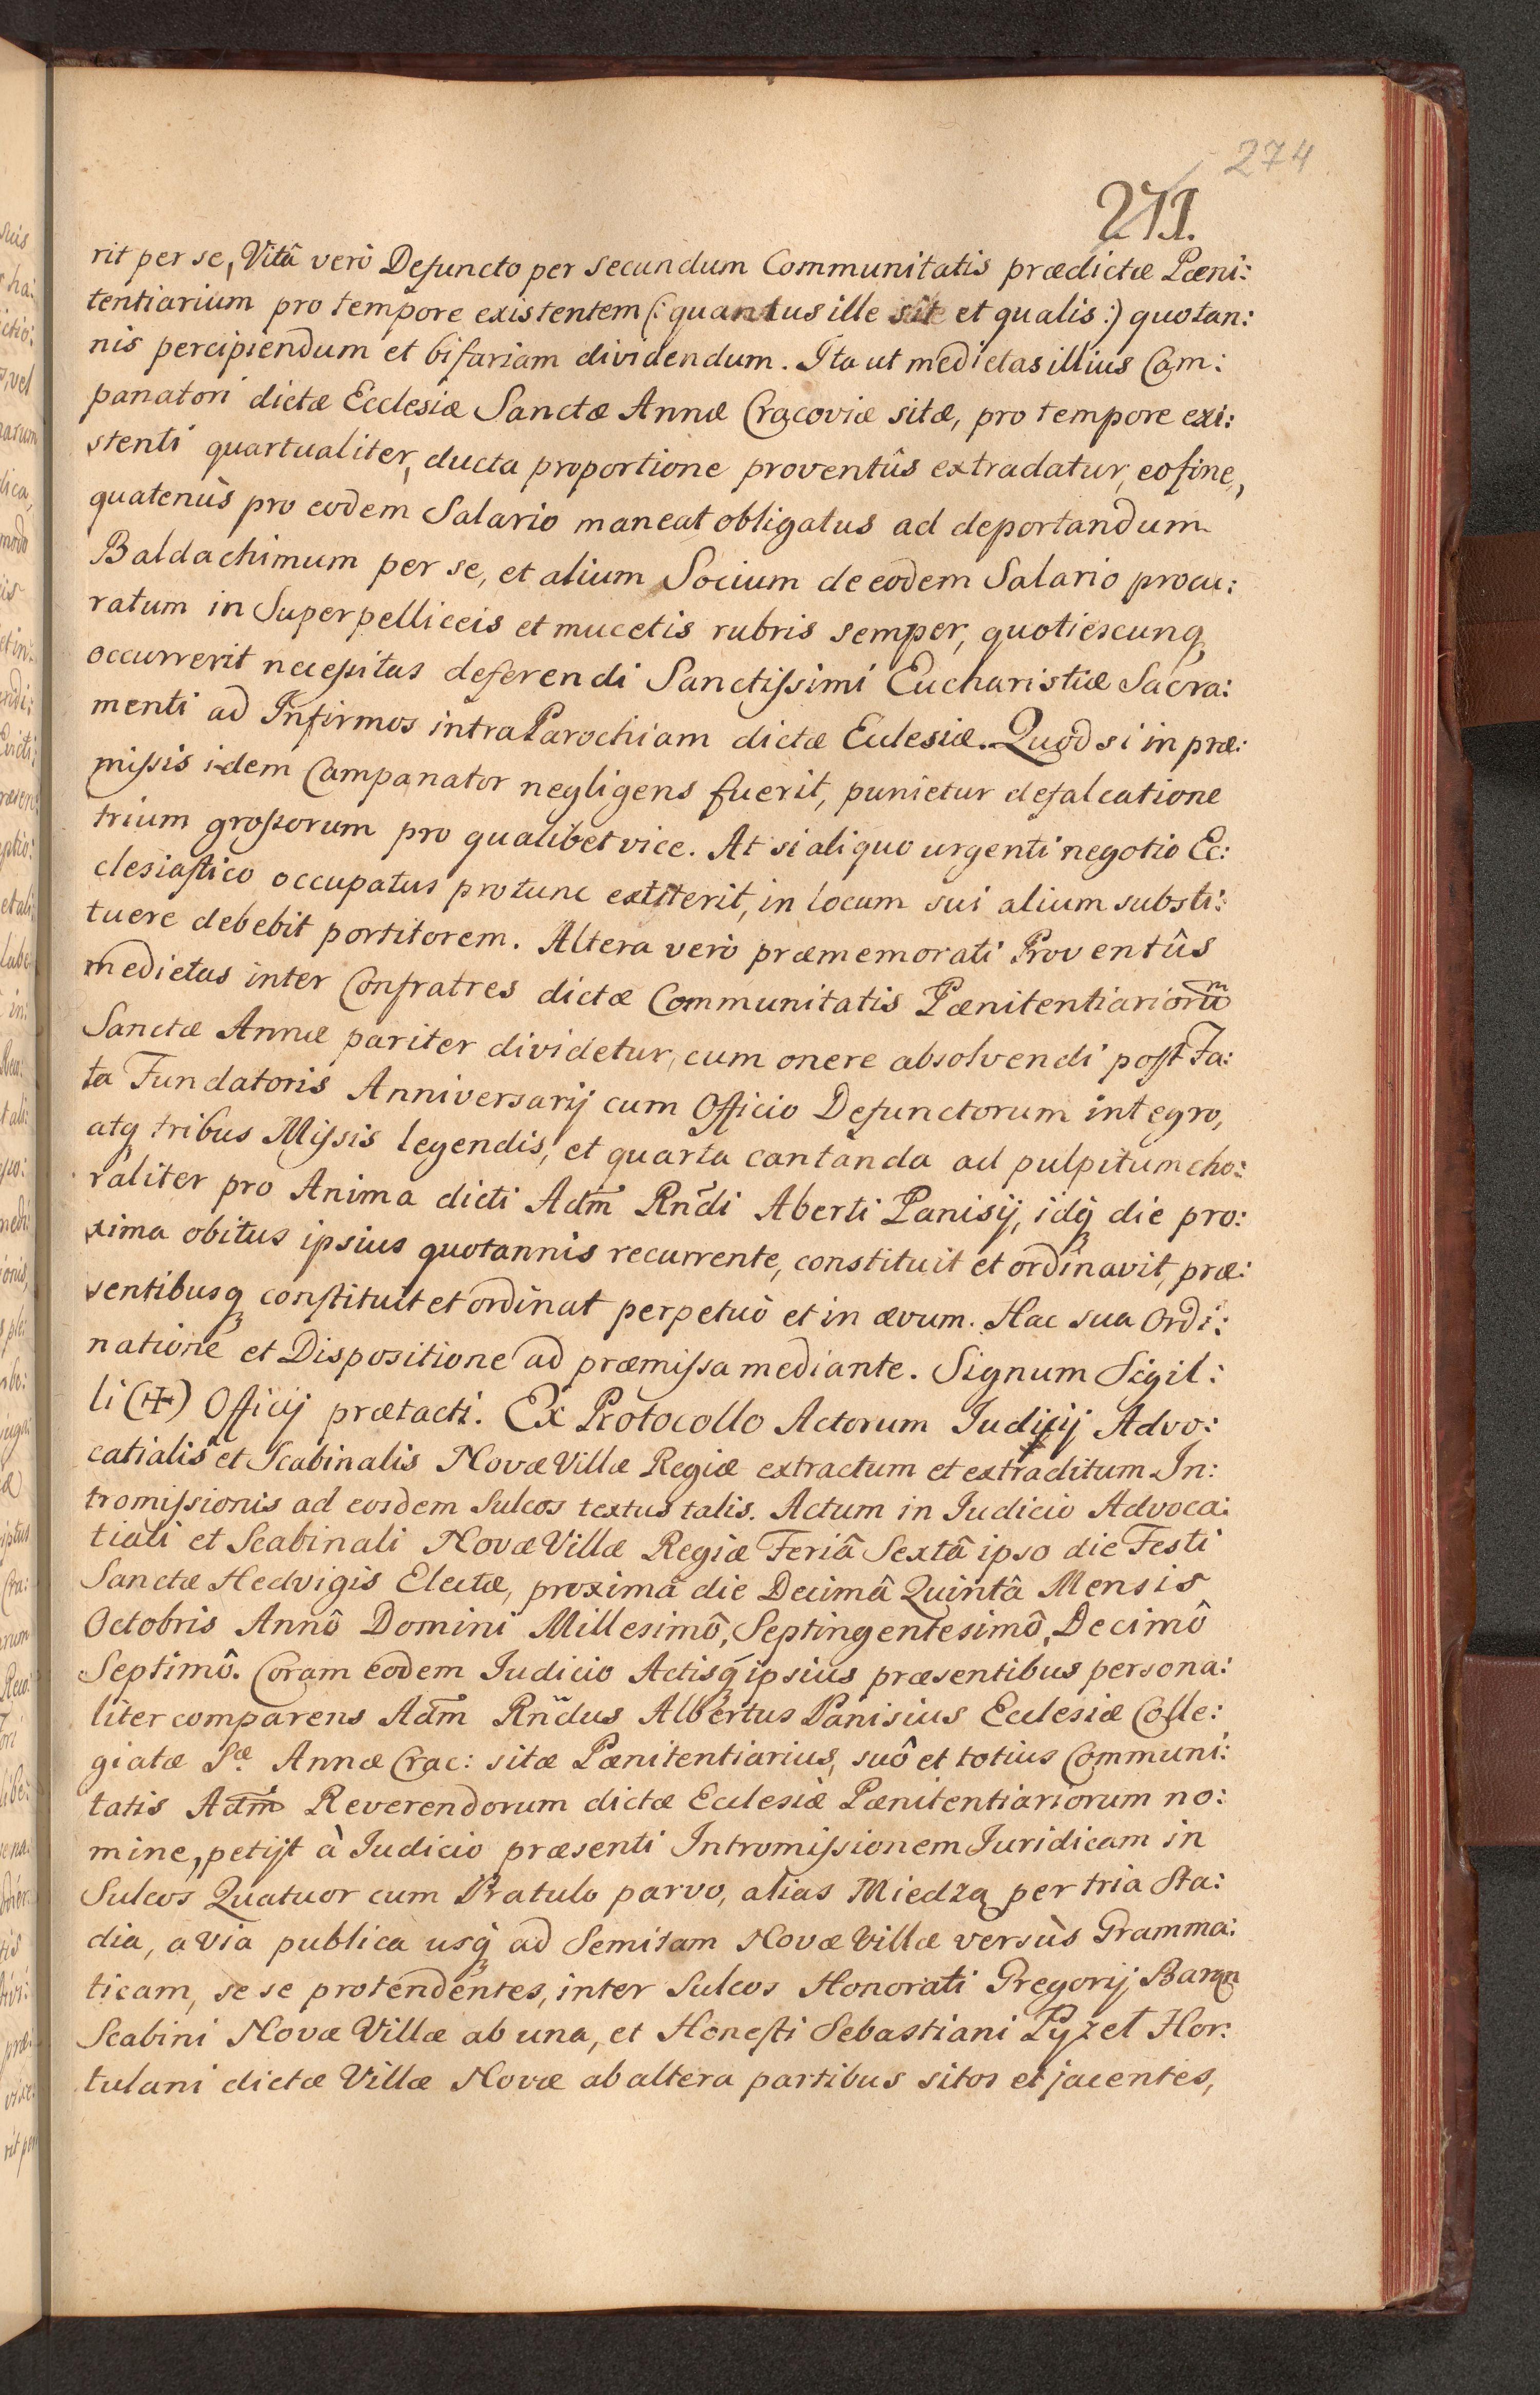 274
271.
rit per se, Vitâ verò Defuncto per secundum Communitatis prædictæ Pæni:
tentiarium pro tempore existentem (: quantus ille sit et qualis :) quotan:
nis percipiendum et bifariam dividendum. Ita ut medietas illius Cam:
panatori dictæ Ecclesiæ Sanctæ Annæ Cracoviæ sitæ, pro tempore exi:
stenti quartualiter, ducta proportione proventûs extradatur, eo fine,
quatenùs pro eodem Salario maneat obligatus ad deportandum
Baldachimum per se, et alium Socium de eodem Salario procu:
ratum in Superpelliceis et mucetis rubris semper, quotiescunq
occurrerit necessitas deferendi Sanctissimi Eucharistiæ Sacra:
menti ad Infirmos intra Parochiam dictæ Ecclesiæ. Quod si in præ:
missis idem Campanator negligens fuerit, punietur defalcatione
trium grossorum pro qualibet vice. At si aliquo urgenti negotio Ec:
clesiastico occupatus pro tunc extiterit, in locum sui alium substi:
tuere debebit portitorem. Altera verò præmemorati Proventûs
medietas inter Confratres dictæ Communitatis Pænitentiariorũm
Sanctæ Annæ pariter dividetur, cum onere absolvendi post Fa:
ta Fundatoris Anniversarij cum Officio Defunctorum integro,
atq tribus Missis legendis, et quarta cantanda ad pulpitum cho:
raliter pro Anima dicti Adm̃ Rñdi Aberti Panisij, idq̃ die pro:
xima obitus ipsius quotannis recurrente, constituit et ordinavit, præ:
sentibusq constituit et ordinat perpetuò et in ævum. Hac sua Ordi:
natione et Dispositione ad præmissa mediante. Signum Sigil:
li (✠) Officij prætacti. Ex Protocollo Actorum Iudicij Advo:
catialis et Scabinalis Novæ Villæ Regiæ extractum et extraditum In:
tromissionis ad eosdem Sulcos textus talis. Actum in Iudicio Advoca:
tiali et Scabinali Novæ Villæ Regiæ Feriâ Sextâ ipso die Festi
Sanctæ Hedvigis Electæ, proximâ die Decimâ Quintâ Mensis
Octobris Annô Domini Millesimô, Septingentesimô, Decimô
Septimô. Coram eodem Iudicio Actisq̃ ipsius præsentibus persona:
liter comparens Adm̃ Rñdus Albertus Panisius Ecclesiæ Colle:
giatæ Sæ. Annæ Crac: sitæ Pænitentiarius, suô et totius Communi:
tatis Adm̃ Reverendorum dictæ Ecclesiæ Pænitentiariorum no:
mine, petijt à Iudicio præsenti Intromissionem Iuridicam in
Sulcos Quatuor cum Pratulo parvo, alias Miedzą per tria Sta:
dia, a via publica usq̃ ad Semitam Novæ Villæ versùs Gramma:
ticam, se se protendentes, inter Sulcos Honorati Gregorij
Scabini Novæ Villæ ab una, et Honesti Sebastiani Pyzel Hor:
tulani dictæ Villæ Novæ ab altera partibus sitos et jacentes,